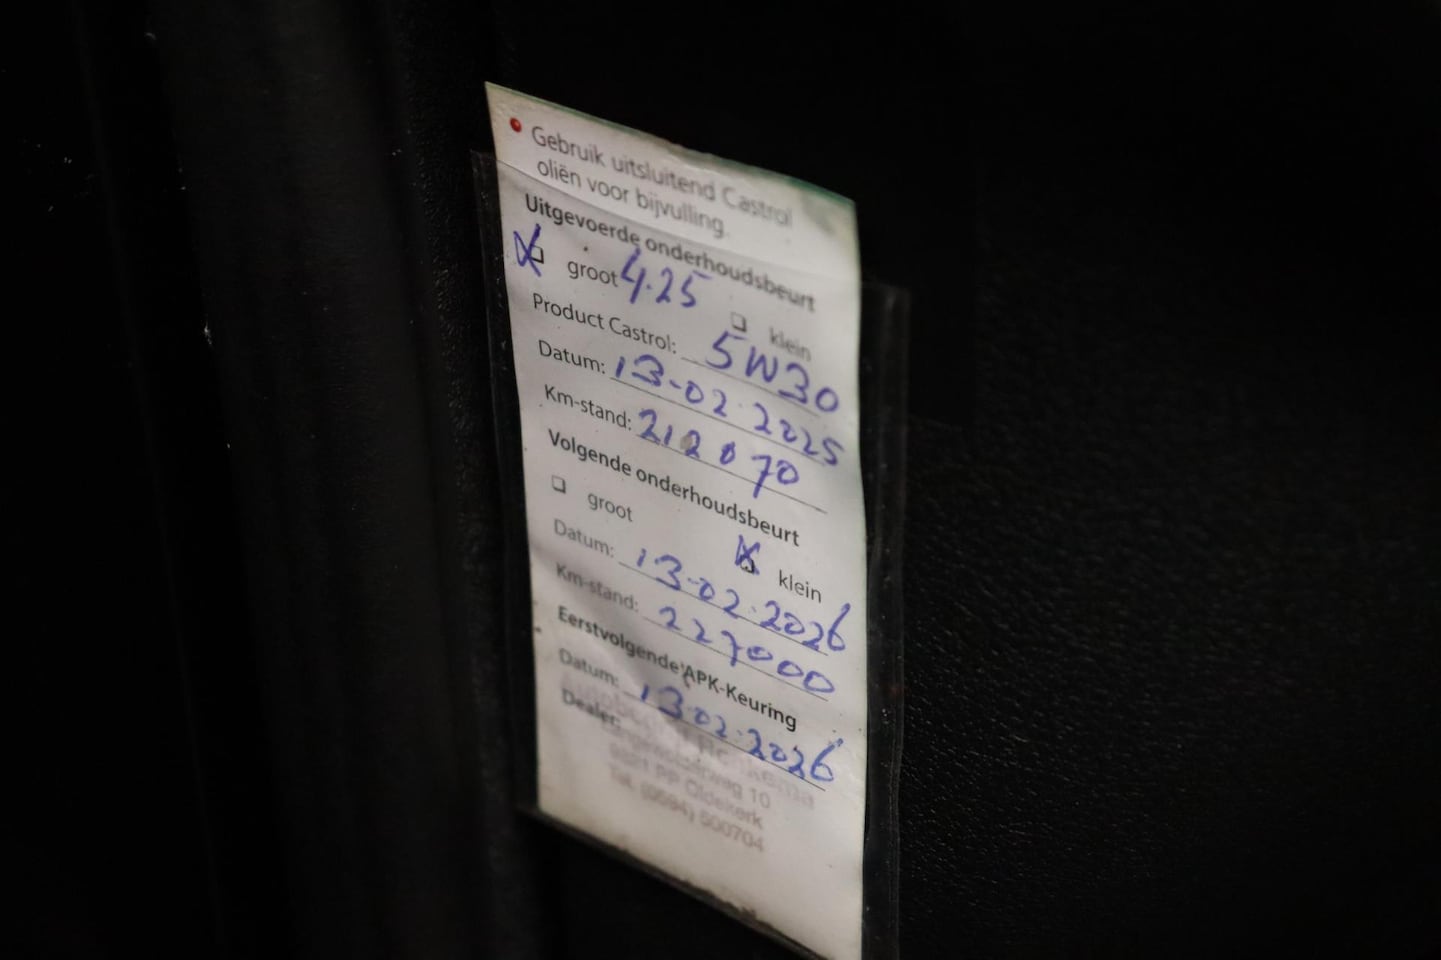 Gebruik uitsluitend Castrol
oliën voor bijvulling.
Uitgevoerde onderhoudsbeurt
groot 4.25 klein
Product Castrol: 5W30
Datum: 13-02-2025
Km-stand: 212070
Volgende onderhoudsbeurt
groot klein
Datum: 13-02-2026
Km-stand: 227000
Eerstvolgende APK-Keuring
Datum: 13-02-2026
Dealer:
10
Oldekerk
Tel. (0594) 500704